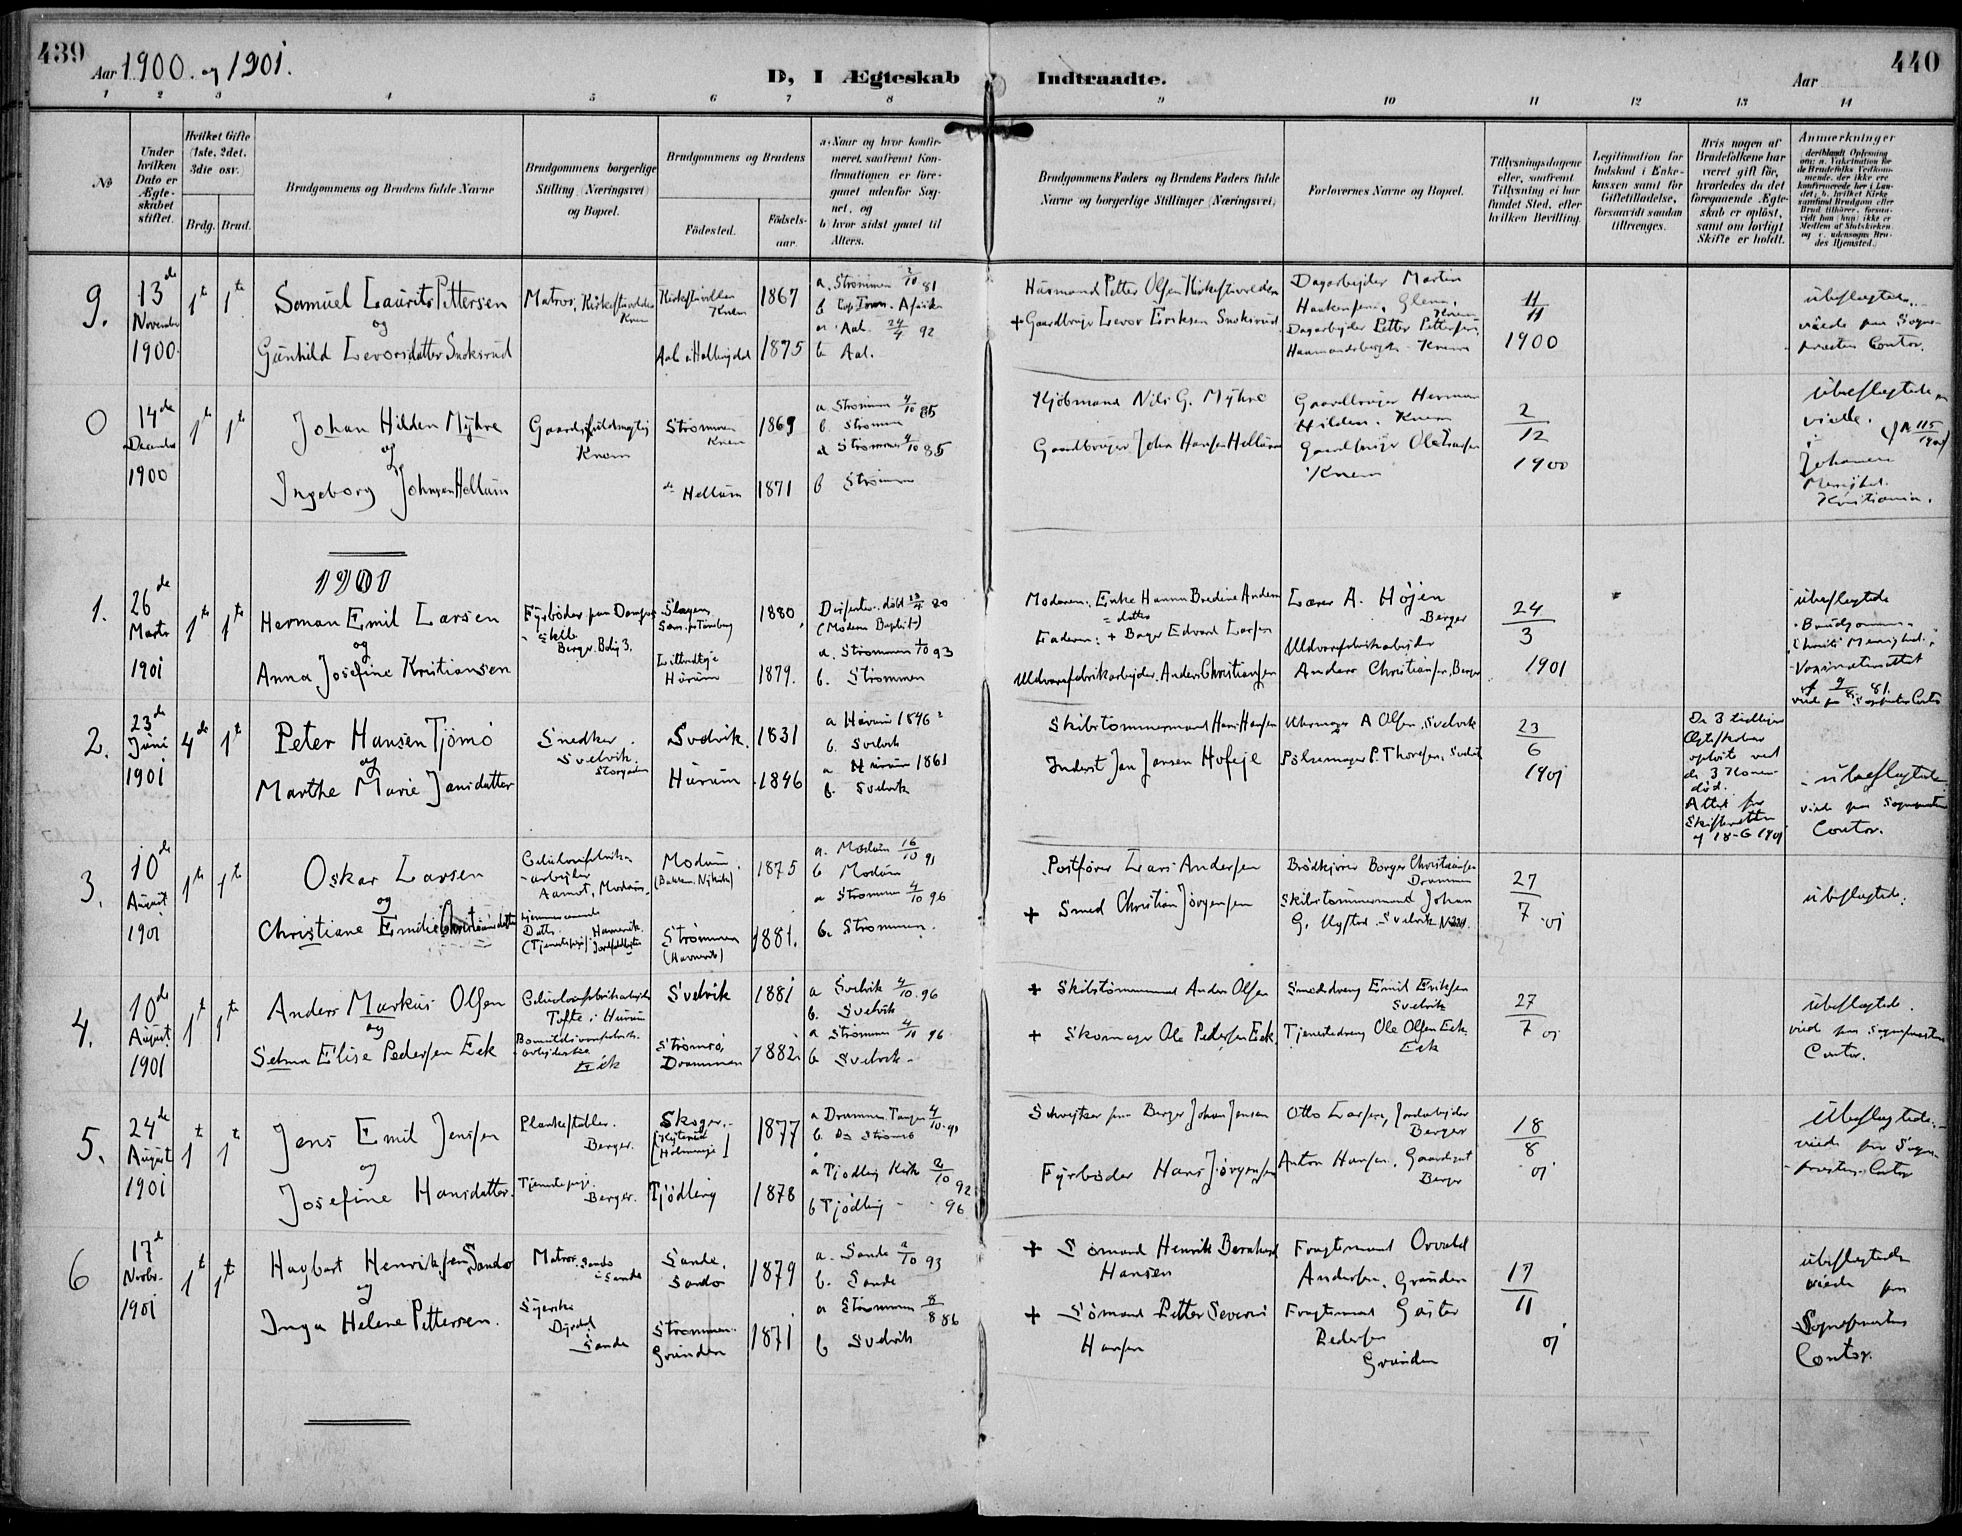 439
Aar 1900. og 1901.
D, I Ægteskab
Indtraadte.
Aar
440
1 2 3 4 5 6 7 8 9 10 11 12 13 14
No
Under hvilken Dato er Ægteskabet stiftet.
Hvilket Gifte (1ste, 2det, 3die osv.)
Brdg. Brud.
Brudgommens og Brudens fulde Navne
Brudgommens borgerlige Stilling (Næringsvei) og Bopæl.
Brudgommens og Brudens
Fødested.
Fødselsaar.
a. Naar og hvor konfirmeret, saafremt Konfirmationen er foregaaet udenfor Sognet, og
b. hvor sidst gaaet til Alters.
Brudgommens Faders og Brudens Faders fulde Navne og borgerlige Stillinger (Næringsvei)
Forlovernes Navne og Bopæl.
Tillysningsdagene eller, saafremt Tillysning ei har fundet Sted, efter hvilken Bevilling.
Legitimation for Indskud i Enkekassen samt for Giftetilladelse, forsaavidt saadan tiltrænges.
Hvis nogen af Brudefolkene har været gift før, hvorledes da det foregaaende Ægteskab er opløst, samt om lovligt Skifte er holdt.
Anmerkninger
9.
13de November 1900.
1te 1te
Samuel Laurits Pettersen
og
Gunhild Levorsdatter Snoksrud
Matros, Kirkestuvolden
Knem
Kirkestuvolden
Knem
Aal i Hallingdal
1867
1875
a. Strømmen 2/10 81
b. Cap Town. Afrika
a. Aal. 24/4 92
b. Aal.
Husmand Petter Olsen Kirkestuvolden
+ Gaardbruger Levor Eriksen Snoksrud
Dagarbejder Martin
Haakensen, Glenn,
Knem
Dagarbejder Petter Pettersen,
Knem
11/11
1900
ubeslægtede.
viede paa Sogne-
præstens Contor.
0
14de
1900
1te 1te
Johan Hilden Myhre
og
Ingeborg Johnsen Hellum
Gaardsfuldmægtig
Knem
Strømmen
Knem
Hellum
1869
1871
a. Strømmen 4/10 85
b. Strømm
a. Strømmen 4/10 85
b. Strømm
Kjøbmand Nils G. Myhre
Gaardbruger John Hansen Hellum
Gaardbruger Herman
Hilden. Knem
Gaardbruger Ole
Knem
2/12
1900
ubeslægtede
viede.
i
Johannes
Menighed.
Kristiania.
1901
1.
26de Marts 1901
1te 1te
Herman Emil Larsen
og
Anna Josefine Kristiansen
Fyrbøder paa Damps
Berger. Bolig 3.
Slagen,
Sem. pr Tønsberg
Hurum
1880.
1879.
Dissenter. døbt 20
(Moderen Baptist)
a. Strømmen 1/10 93
b. Strømmen
Moderen: Enke Hanna Bredine Anders
= datter
Faderen: + Bager Edvard Larsen
Uldvarefabrikarbejder. Anders Christiansen
Lærer A. Højen
Berger
Uldvarefabrikarbejder
Anders Christiansen, Berger
24/3
1901
ubeslægtede
Brudgommen
Christi Menighed.
2.
23de Juni 1901
4de 1te
Peter Hansen Tjømø
og
Marthe Marie Jansdatter
Snedker.
Svelvik.
Storgaden
Svelvik.
Hurum
1831
1846
a Hurum 1846
b. Svelvik
a Hurum 1861
b. Svelvik
Skibstømmermand Hans Hansen
Inderst Jan Jansen Hofeje
Uhrmager A Olsen, Svelvik
Pølsemager P. Thoresen, Svelvik
23/6
1901
De 3 tidligere
Ægteskaber
opløst ved
de 3 Koners
død.
Attest fra
Skifteretten
af 18-6 1901
ubeslægtede
viede paa Sognepræstens
Contor.
3.
10de August 1901
1te 1te
Oskar Larsen
og
Christiane Emilie Christiansdatter
Celulosefabrik
-arbejder
Aamot, Modum.
Hjemmeværende
Datter. Havnevik.
Modum.
Strømmen
(Havnevik)
1875
1881.
a. Modum 16/10 91
b Modum
a Strømmen 4/10 96
b. Strømmen.
Postfører Lars Andersen
+ Smed Christian Jørgensen
Brødkjører Borger Christiansen
Drammen
Skibstømmermand Johan
G. Nysted. Svelvik
27/7 01
ubeslægtede.
4.
10de August 1901
1te 1te
Anders Markus Olsen
og
Selma Elise Pedersen Eek
Celulosefabrikarbejder
Tofte i Hurum
Bomuldsvarefabrik.
-arbejderske
Eik
Svelvik
Strømsø,
Drammen
1881
1882.
a Svelvik 4/10. 96
b. Svelvik
a Strømmen 4/10 96
b Svelvik
+ Skibstømmermand Anders Olsen
+ Skomager Ole Pedersen Eek.
Smeddreng Emil Eriksen
Svelvik
Tjenestedreng Ole Olsen Eek
Eek
27/7 01
ubeslægtede.
viede paa Sognepræstens
Contor.
5.
24de August 1901
1t 1t
Jens Emil Jensen
og
Josefine Hansdatter.
Plankestabler.
Berger.
Tjenestepige.
Berger.
Skoger.
Tjødling
1877
1878
a Drammen. Tangen 4/10. 91
b. Do Strømsø
a Tjodling Kirke 2/10 92
b Tjødling 96
Schweitzer paa Berger Johan Jensen
Fyrbøder Hans Jørgensen
Otto Larsen, Jordarbejder
Berger
Anton Hansen, Gaardsgut
Berger
18/8
01
ubeslægtede.
viede paa Sogne-
præstens Contor
6
17de Novbr. 1901
1t 1t
Hagbart Henriksen Sando
og
Inga Helene Pettersen.
Matros. Sando
i Sande
Syerske
Sande
Sande.
Sando
Strømmen.
Grunden
1879
1871
a. Sande 2/10 93
b. Sande
a Strømmen 8/8 86
b Svelvik
+ Sømand Henrik Bernhard
Hansen
+ Sømand Petter Severin
Hansen
Fragtemand Osvald
Andersen, Grunden
Fragtemand Gustav
Pedersen
Grunden
17/11
01
ubeslægtede
viede paa
Sognepræstens
Contor.